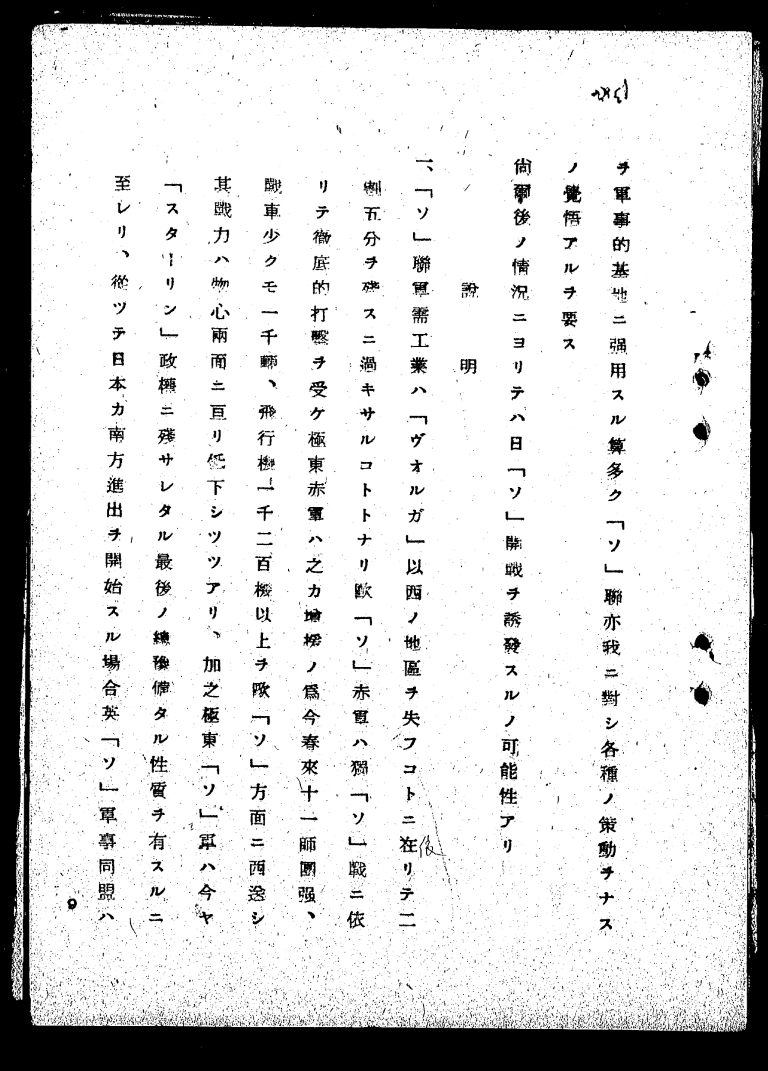 ヲ軍事的基地ニ强用スル算多ク「ソ」聯亦我ニ對シ各種ノ策動ヲナス
ノ覺悟アルヲ要ス
尙爾後ノ情況ニヨリテハ日「ソ」開戰ヲ誘發スルノ可能性アリ
說明
一、「ソ」聯軍需工業ハ「ヴオルガ」以西ノ地區ヲ失フコトニ在リテ二
割五分ヲ殘スニ過キサルコトトナリ歐「ソ」赤軍ハ獨「ソ」戰ニ依
リテ徹底的打擊ヲ受ケ極東赤軍ハ之カ增援ノ爲今春來十一師團强、
戰車少クモ一千輛、飛行機一千二百機以上ヲ歐「ソ」方面ニ西送シ
其戰力ハ物心兩面ニ亘リ低下シツツアリ、加之極東「ソ」軍ハ今ヤ
「スターリン」政權ニ殘サレタル最後ノ總豫備タル性質ヲ有スルニ
至レリ、從ツテ日本カ南方進出ヲ開始スル場合英「ソ」軍事同盟ハ
9